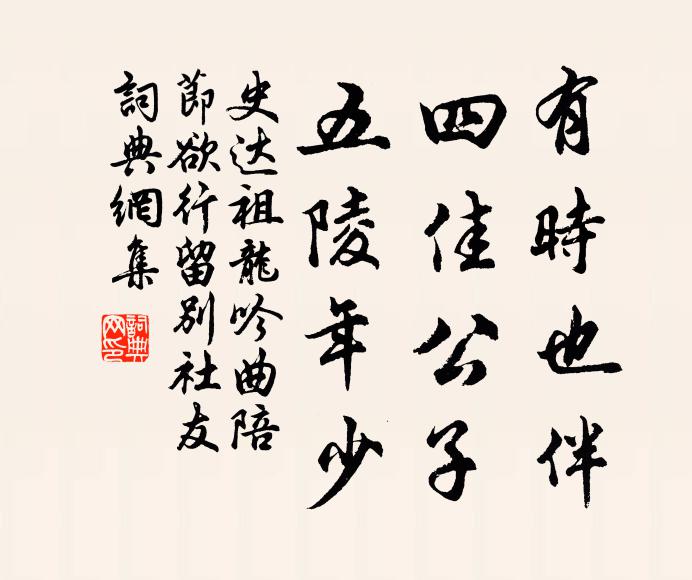 有時也伴
四佳公子
五陵年少
史达祖龍吟曲陪
節欲行留別社友
詞典網集
詞典
网印